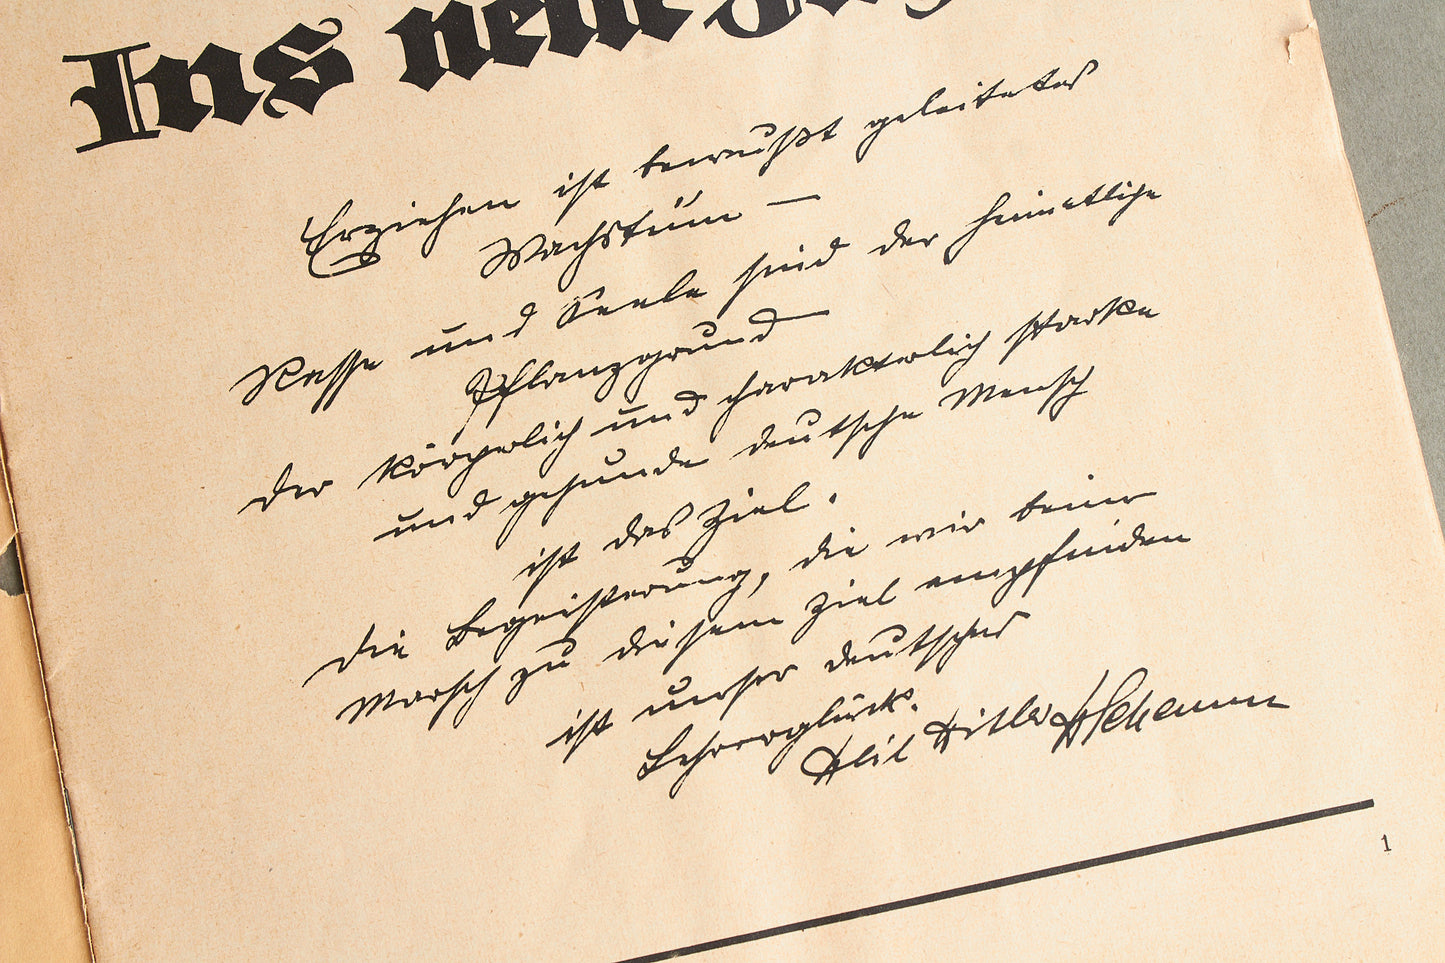 Ins neue
Erziehen ist bewußt geleitetes
Wachstum –
Rasse und Seele sind der heimatliche
Pflanzgrund
der körperlich und charakterlich starke
und gesunde deutsche Mensch
ist das Ziel.
Die Begeisterung, die wir beim
Marsch zu diesem Ziel empfinden
ist unser deutsches
Lehrerglück.
Heil Hitler HSchemm
1